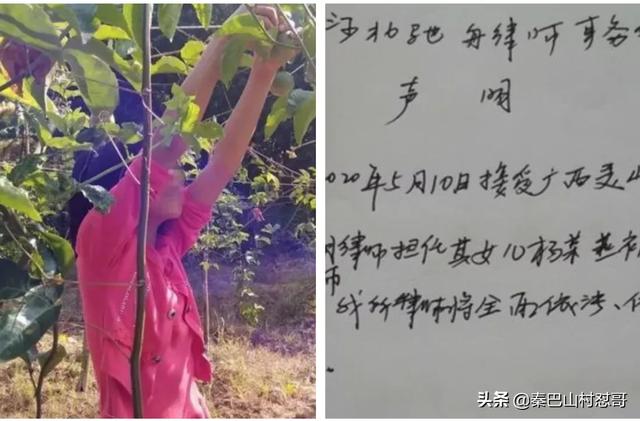 北弛舟律师事务
声明
2020年5月10日接受广西灵山
律师担任其女儿杨某燕
师
我所律师将全面依法、
头条@秦巴山村怼哥